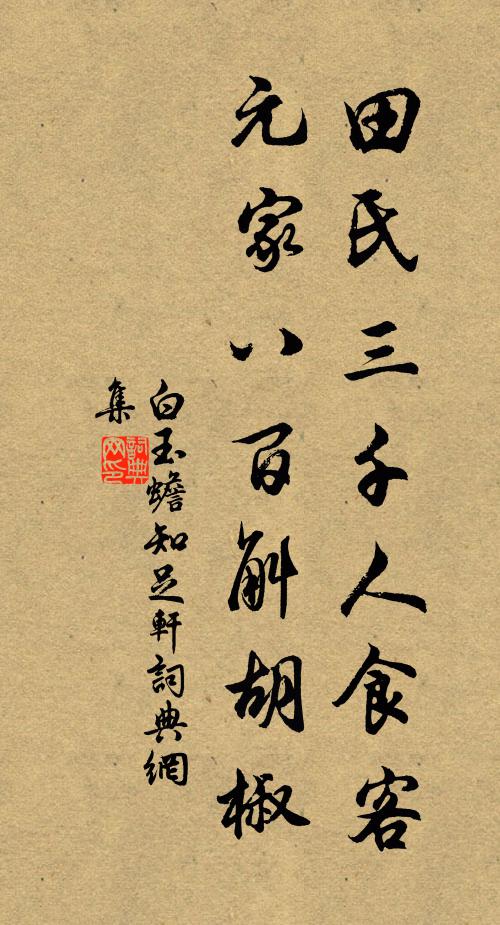 田氏三千人食客
元家八百斛胡椒
白玉蟾知足軒詞典網
集
詞典
网印